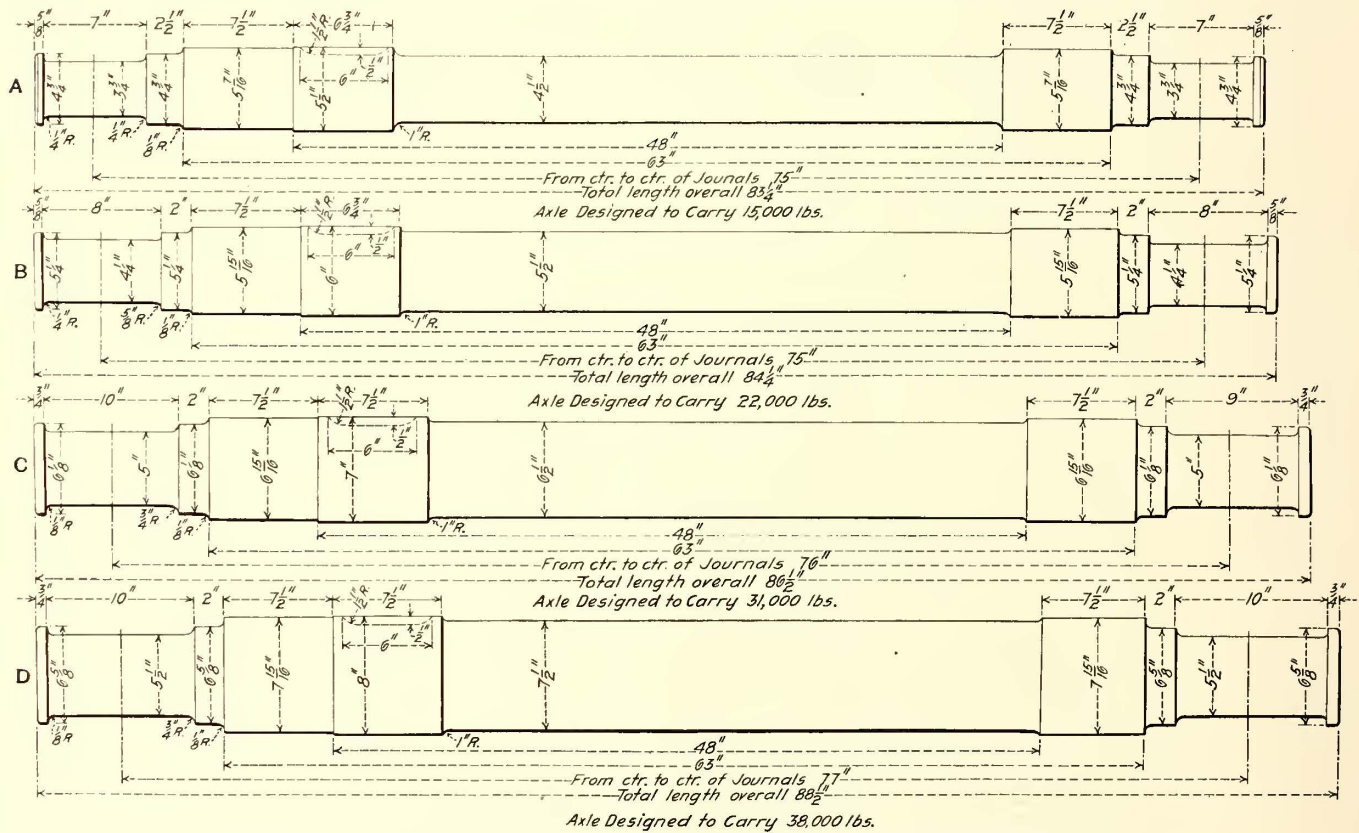 5/8" 7" 2 1/2" 7 1/2" 6 3/4" 7 1/2" 2 1/2" 7" 5/8"
1/2" R. 1/2" 6"
A 4 3/4" 3 3/4" 4 3/4" 5 7/16" 5 1/2" 4 1/2" 5 7/16" 4 3/4" 3 3/4" 4 3/4"
1/4" R. 1/4" R. 1/8" R. 1" R.
48"
63"
From ctr. to ctr. of Journals 75"
Total length overall 83 1/4"
Axle Designed to Carry 15,000 lbs.
5/8" 8" 2" 7 1/2" 6 3/4" 7 1/2" 2" 8" 5/8"
1/2" R. 1/2" 6"
B 5 1/4" 4 1/4" 5 1/4" 5 15/16" 6" 5 1/2" 5 15/16" 5 1/4" 4 1/4" 5 1/4"
1/4" R. 5/8" R. 1/8" R. 1" R.
48"
63"
From ctr. to ctr. of Journals 75"
Total length overall 84 1/4"
Axle Designed to Carry 22,000 lbs.
3/4" 10" 2" 7 1/2" 7 1/2" 7 1/2" 2" 9" 3/4"
1/2" R. 1/2" 6"
C 6 1/8" 5" 6 1/8" 6 15/16" 7" 6 1/2" 6 15/16" 6 1/8" 5" 6 1/8"
1/8" R 3/4" R. 1/8" R. 1" R.
48"
63"
From ctr. to ctr. of Journals 76"
Total length overall 86 1/2"
Axle Designed to Carry 31,000 lbs.
3/4" 10" 2" 7 1/2" 7 1/2" 7 1/2" 2" 10" 3/4"
1/2" R. 1/2" 6"
D 6 5/8" 5 1/2" 6 5/8" 7 15/16" 8" 7 1/2" 7 15/16" 6 5/8" 5 1/2" 6 5/8"
1/8" R. 3/4" R. 1/8" R. 1" R.
48"
63"
From ctr. to ctr. of Journals 77"
Total length overall 88 1/2"
Axle Designed to Carry 38,000 lbs.